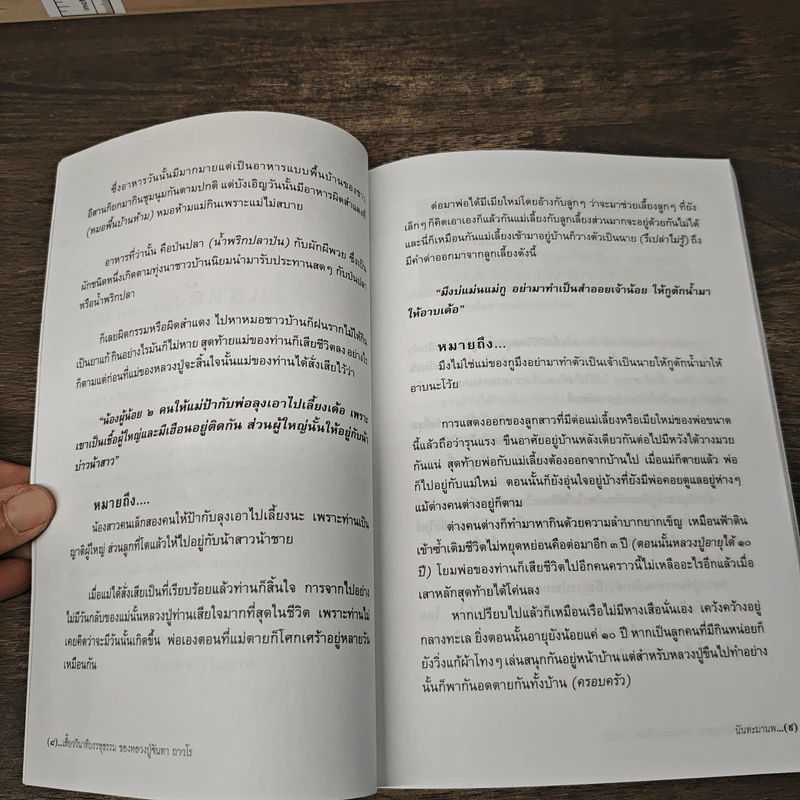 ซึ่งอาหารวันนั้นมีมากมายแต่เป็นอาหารแบบพื้นบ้านของชาว
อีสานก็ยกมากินชุมนุมกันตามปกติ แต่บังเอิญวันนั้นมีอาหารผิดสำแดงที่
(หมอพื้นบ้านห้าม) หมอห้ามแม่กินเพราะแม่ไม่สบาย
อาหารที่ว่านั้น คือป่นปลา (น้ำพริกปลาป่น) กับผักผีพวย ซึ่งเป็น
ผักชนิดหนึ่งเกิดตามทุ่งนาชาวบ้านนิยมนำมารับประทานสดๆ กับป่นปลา
หรือน้ำพริกปลา
ก็เลยผิดกรรมหรือผิดสำแดง ไปหาหมอชาวบ้านก็ฝนรากไม้ให้กิน
เป็นยาแก้ กินอย่างไรมันก็ไม่หาย สุดท้ายแม่ของท่านก็เสียชีวิตลง อย่างไร
ก็ตามแต่ก่อนที่แม่ของหลวงปู่จะสิ้นใจนั้นแม่ของท่านได้สั่งเสียไว้ว่า
“น้องผู้น้อย ๒ คนให้แม่ป้ากับพ่อลุงเอาไปเลี้ยงเด้อ เพราะ
เขาเป็นเชื้อผู้ใหญ่และมีเฮือนอยู่ติดกัน ส่วนผู้ใหญ่นั้นให้อยู่กับน้า
บ่าวน้าสาว”
หมายถึง....
น้องสาวคนเล็กสองคนให้ป้ากับลุงเอาไปเลี้ยงนะ เพราะท่านเป็น
ญาติผู้ใหญ่ ส่วนลูกที่โตแล้วให้ไปอยู่กับน้าสาวน้าชาย
เมื่อแม่ได้สั่งเสียเป็นที่เรียบร้อยแล้วท่านก็สิ้นใจ การจากไปอย่าง
ไม่มีวันกลับของแม่นั้นหลวงปู่ท่านเสียใจมากที่สุดในชีวิต เพราะท่านไม่
เคยคิดว่าจะมีวันนั้นเกิดขึ้น พ่อเองตอนที่แม่ตายก็โศกเศร้าอยู่หลายวัน
เหมือนกัน
(๘)...เสี้ยววินาทีบรรลุธรรม ของหลวงปู่จันทา ถาวโร
ต่อมาพ่อได้มีเมียใหม่โดยอ้างกับลูกๆ ว่าจะมาช่วยเลี้ยงลูกๆ ที่ยัง
เล็กๆ ก็คิดเอาเองก็แล้วกันแม่เลี้ยงกับลูกเลี้ยงส่วนมากจะอยู่ด้วยกันไม่ได้
และนี่ก็เหมือนกันแม่เลี้ยงเข้ามาอยู่บ้านก็วางตัวเป็นนาย (รึเปล่าไม่รู้) ถึง
มีคำด่าออกมาจากลูกเลี้ยงดังนี้
“มึงบ่แม่นแม่กู อย่ามาทำเป็นสำออยเจ้าน้อย ให้กูตักน้ำมา
ให้อาบเด้อ”
หมายถึง...
มึงไม่ใช่แม่ของกูมึงอย่ามาทำตัวเป็นเจ้าเป็นนายให้กูตักน้ำมาให้
อาบนะโว้ย
การแสดงออกของลูกสาวที่มีต่อแม่เลี้ยงหรือเมียใหม่ของพ่อขนาด
นี้แล้วถือว่ารุนแรง ขืนอาศัยอยู่บ้านหลังเดียวกันต่อไปมีหวังได้วางมวย
กันแน่ สุดท้ายพ่อกับแม่เลี้ยงต้องออกจากบ้านไป เมื่อแม่ก็ตายแล้ว พ่อ
ก็ไปอยู่กับแม่ใหม่ ตอนนั้นก็ยังอุ่นใจอยู่บ้างที่ยังมีพ่อคอยดูแลอยู่ห่างๆ
แม้ต่างคนต่างอยู่ก็ตาม
ต่างคนต่างก็ทำมาหากินด้วยความลำบากยากเข็ญ เหมือนฟ้าดิน
เข้าซ้ำเติมชีวิตไม่หยุดหย่อนคือต่อมาอีก ๓ ปี (ตอนนั้นหลวงปู่อายุได้ ๑๐
ปี) โยมพ่อของท่านก็เสียชีวิตไปอีกคนคราวนี้ไม่เหลืออะไรอีกแล้วเมื่อ
เสาหลักสุดท้ายได้โค่นลง
หากเปรียบไปแล้วก็เหมือนเรือไม่มีหางเสือนั่นเอง เคว้งคว้างอยู่
กลางทะเล ยิ่งตอนนั้นอายุยังน้อยแค่ ๑๐ ปี หากเป็นลูกคนที่มีกินหน่อยก็
ยังวิ่งแก้ผ้าโทงๆ เล่นสนุกกันอยู่หน้าบ้าน แต่สำหรับหลวงปู่ขืนไปทำอย่าง
นั้นก็พากันอดตายกันทั้งบ้าน (ครอบครัว)
นันทะมานพ...(๙)